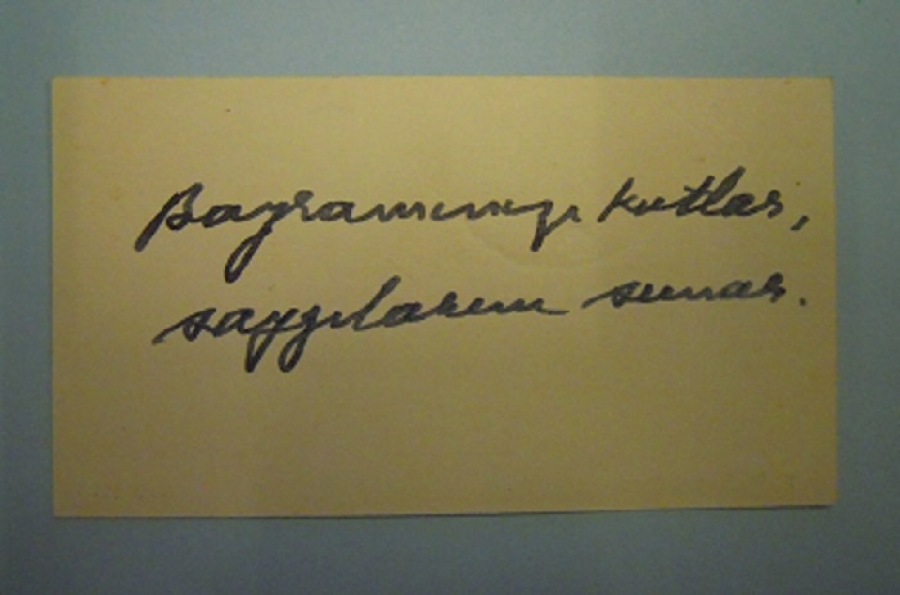 Bayramınızı kutlar,
saygılarını sunar.